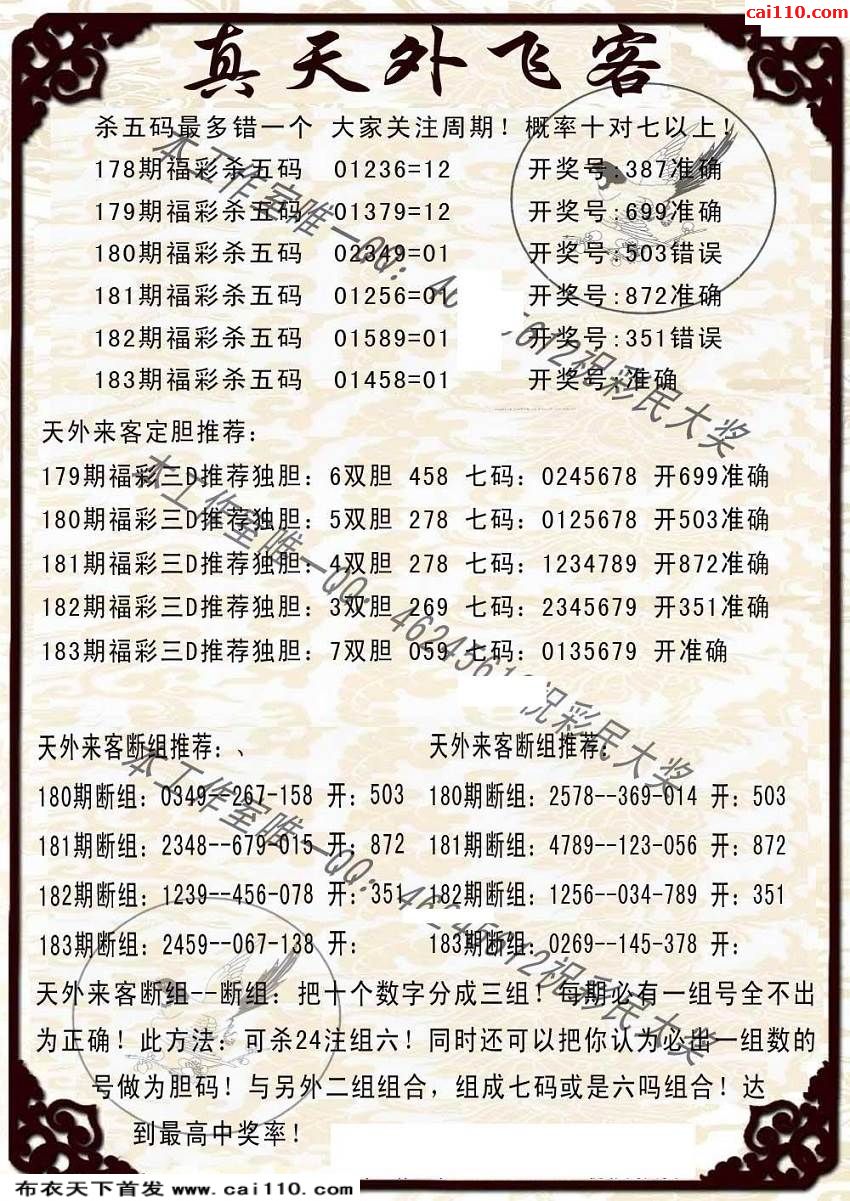 cai110.com
真天外飞客
杀五码最多错一个 大家关注周期！概率十对七以上！
178期福彩杀五码 01236=12 开奖号:387准确
179期福彩杀五码 01379=12 开奖号:699准确
180期福彩杀五码 02349=01 开奖号:503错误
181期福彩杀五码 01256=01 开奖号:872准确
182期福彩杀五码 01589=01 开奖号:351错误
183期福彩杀五码 01458=01 开奖号:准确
天外来客定胆推荐：
179期福彩三D推荐独胆：6双胆 458 七码：0245678 开699准确
180期福彩三D推荐独胆：5双胆 278 七码：0125678 开503准确
181期福彩三D推荐独胆：4双胆 278 七码：1234789 开872准确
182期福彩三D推荐独胆：3双胆 269 七码：2345679 开351准确
183期福彩三D推荐独胆：7双胆 059 七码：0135679 开准确
天外来客断组推荐：、 天外来客断组推荐：
180期断组：0349--267-158 开：503 180期断组：2578--369-014 开：503
181期断组：2348--679-015 开：872 181期断组：4789--123-056 开：872
182期断组：1239--456-078 开：351 182期断组：1256--034-789 开：351
183期断组：2459--067-138 开： 183期断组：0269--145-378 开：
天外来客断组--断组：把十个数字分成三组！每期必有一组号全不出
为正确！此方法：可杀24注组六！同时还可以把你认为必出一组数的
号做为胆码！与另外二组组合，组成七码或是六吗组合！达
到最高中奖率！
本工作室唯一QQ：46 5612祝彩民大奖
本工作室唯一QQ：4624561 祝彩民大奖
本工作室唯一QQ：46245612祝彩民大奖
布衣天下首发 www.cai110.com